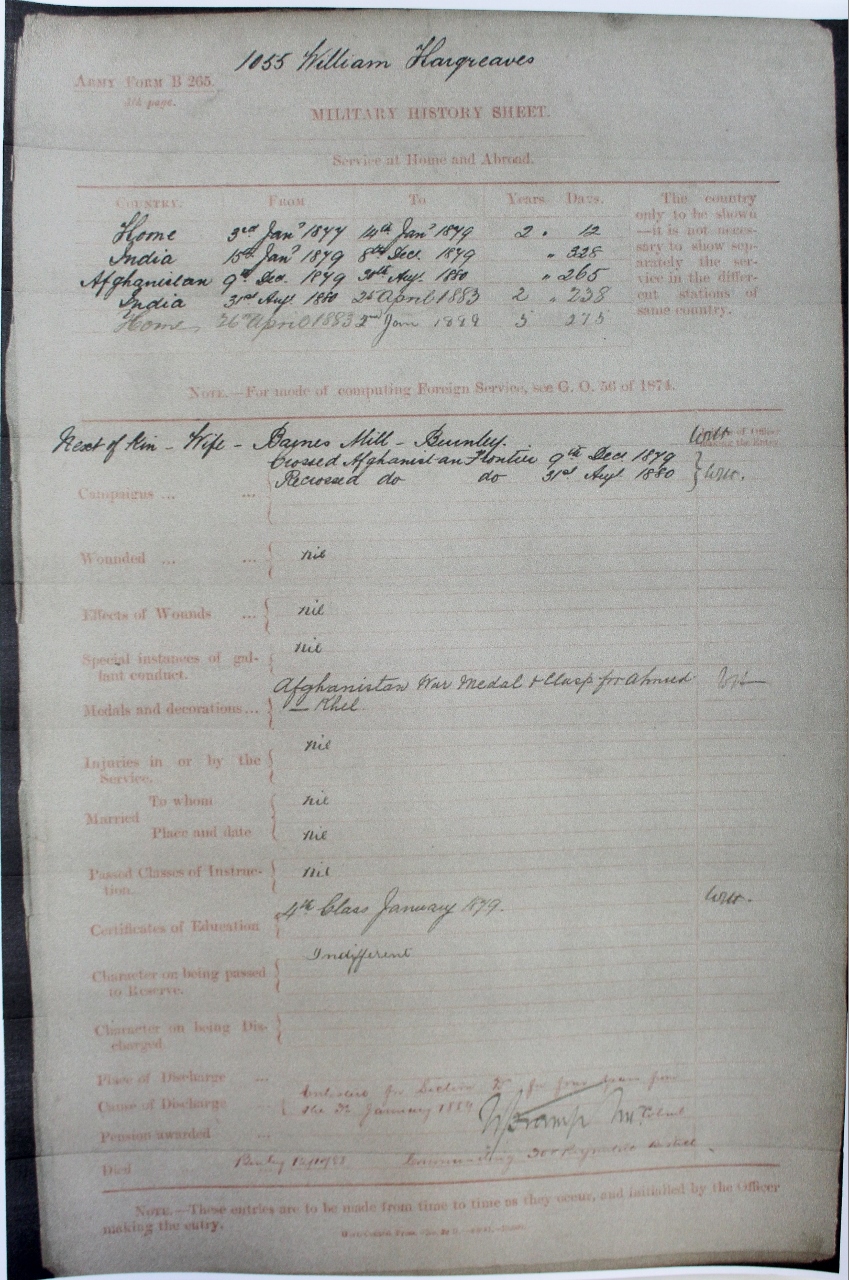 1055 William Hargreaves
ARMY FORM B 265.
MILITARY HISTORY SHEET.
Service at Home and Abroad.
COUNTRY. FROM To Years. Days.
The country
only to be shown
—it is not neces-
sary to show sep-
arately the ser-
vice in the differ-
ent stations of
same country.
Home 3rd Jany 1877 14th Jany 1879 2 " 12
India 15th Jany 1879 8th Dec. 1879 " 328
Afghanistan 9th Dec. 1879 30th Augt. 1880 " 265
India 31st Augt 1880 25 April 1883 2 " 238
Home 26th April 1883 2nd Jan 5 275
NOTE.—For mode of computing Foreign Service, see G. O. 56 of 1874.
Next of Kin - Wife - Barnes Mill - Burnley.
Crossed Afghanistan Frontier 9th Dec 1879
Recrossed do do 31st Augt 1880
Campaigns ... ...
Wounded ... ... nil
Effects of Wounds ... nil
Special instances of gal-
lant conduct. nil
Afghanistan War Medal & Clasp for Ahmed
Medals and decorations ... Khel
Injuries in or by the
Service. nil
Married To whom nil
Place and date nil
Passed Classes of Instruc-
tion. nil
Certificates of Education 4th Class January 1879.
Character on being passed
to Reserve. Indifferent
Character on being Dis-
charged
Place of Discharge ...
Cause of Discharge ... for Section D for four years from
the 3rd January 1889
Pension awarded ...
Died Commanding
NOTE.—These entries are to be made from time to time as they occur, and initialled by the Officer
making the entry.